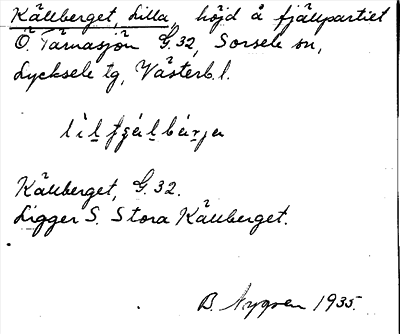 Källberget, Lilla, höjd å fjällpartiet
Ö Tärnasjön G.32, Sorsele sn,
Lycksele tg, Västerb. l.
Källberget, G.32.
Ligger S. Stora Källberget.
B. Nygren 1935.